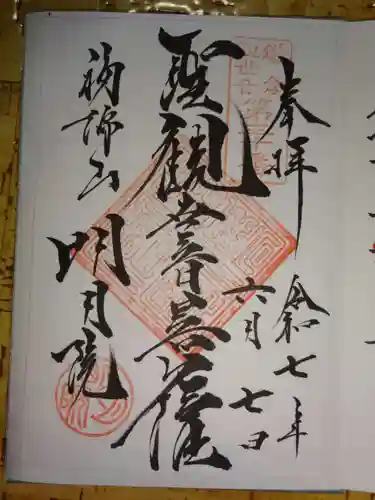 奉拝
令和七年
六月七日
聖観世音菩薩
福源山
明月院